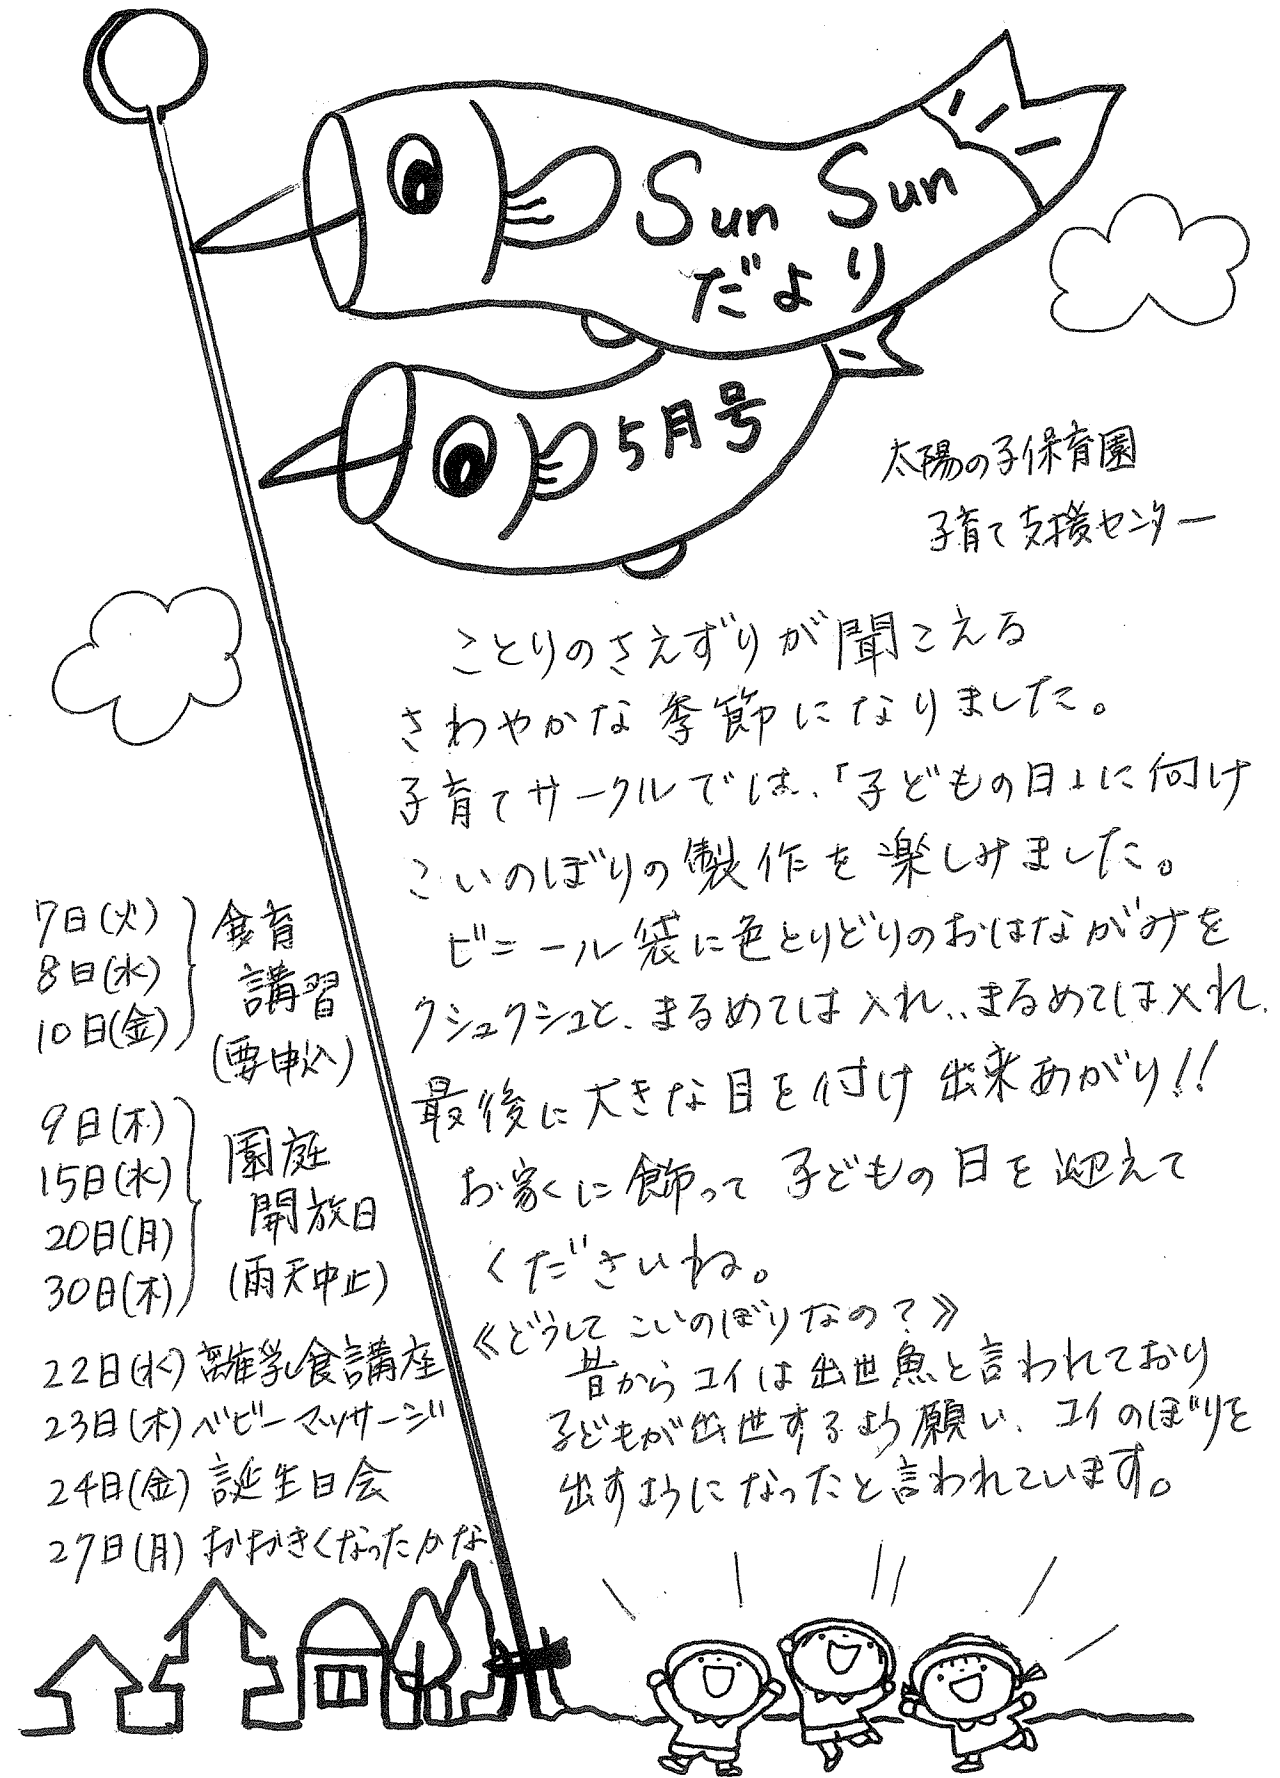 Sun Sun
だより
5月号
太陽の子保育園
子育て支援センター
ことりのさえずりが聞こえる
さわやかな季節になりました。
子育てサークルでは、「子どもの日」に向け
こいのぼりの製作を楽しみました。
ビニール袋に色とりどりのおはながみを
クシュクシュと、まるめては入れ、、まるめては入れ、
最後に大きな目を付け出来あがり!!
お家に飾って子どもの日を迎えて
くださいね。
《どうしてこいのぼりなの?》
昔からコイは出世魚と言われており
子どもが出世するよう願い、コイのぼりを
出すようになったと言われています。
7日(火)
8日(水)
10日(金)
食育
講習
(要申込)
9日(木)
15日(水)
20日(月)
30日(木)
園庭
開放日
(雨天中止)
22日(水)離乳食講座
23日(木)ベビーマッサージ
24日(金)誕生日会
27日(月)おおきくなったかな